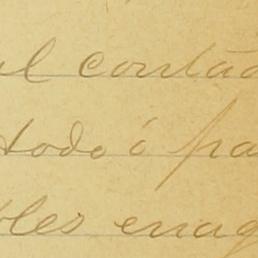 al contad
todo ó pa
bles enag